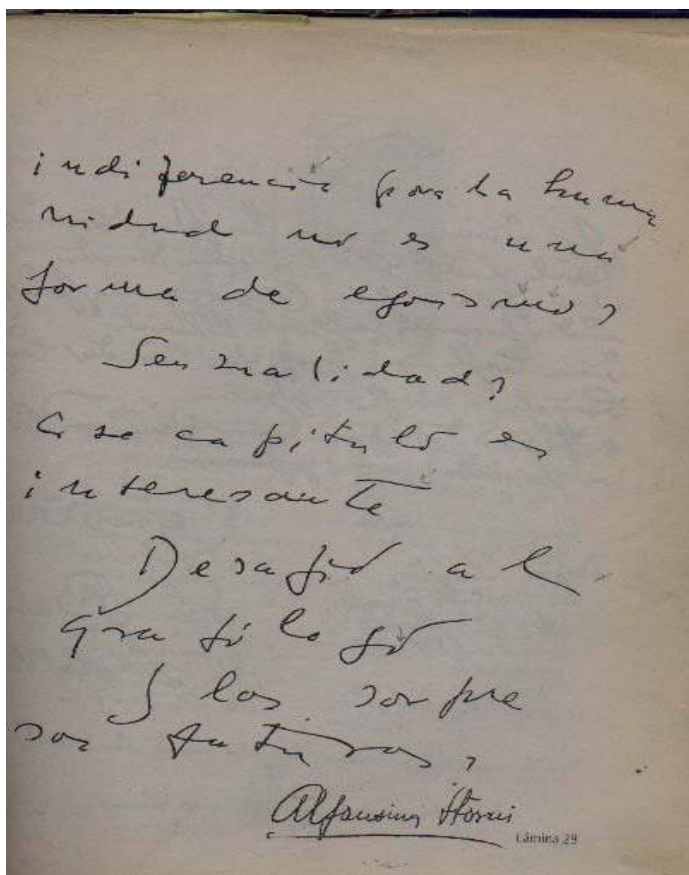 indiferencia por la huma
nidad no es una
forma de egoismo?
Sensualidad?
Ese capitulo es
interesante
Desafio al
grafólogo
y los sorpre
sas futuras?
Alfonsina Storni
Lámina 29